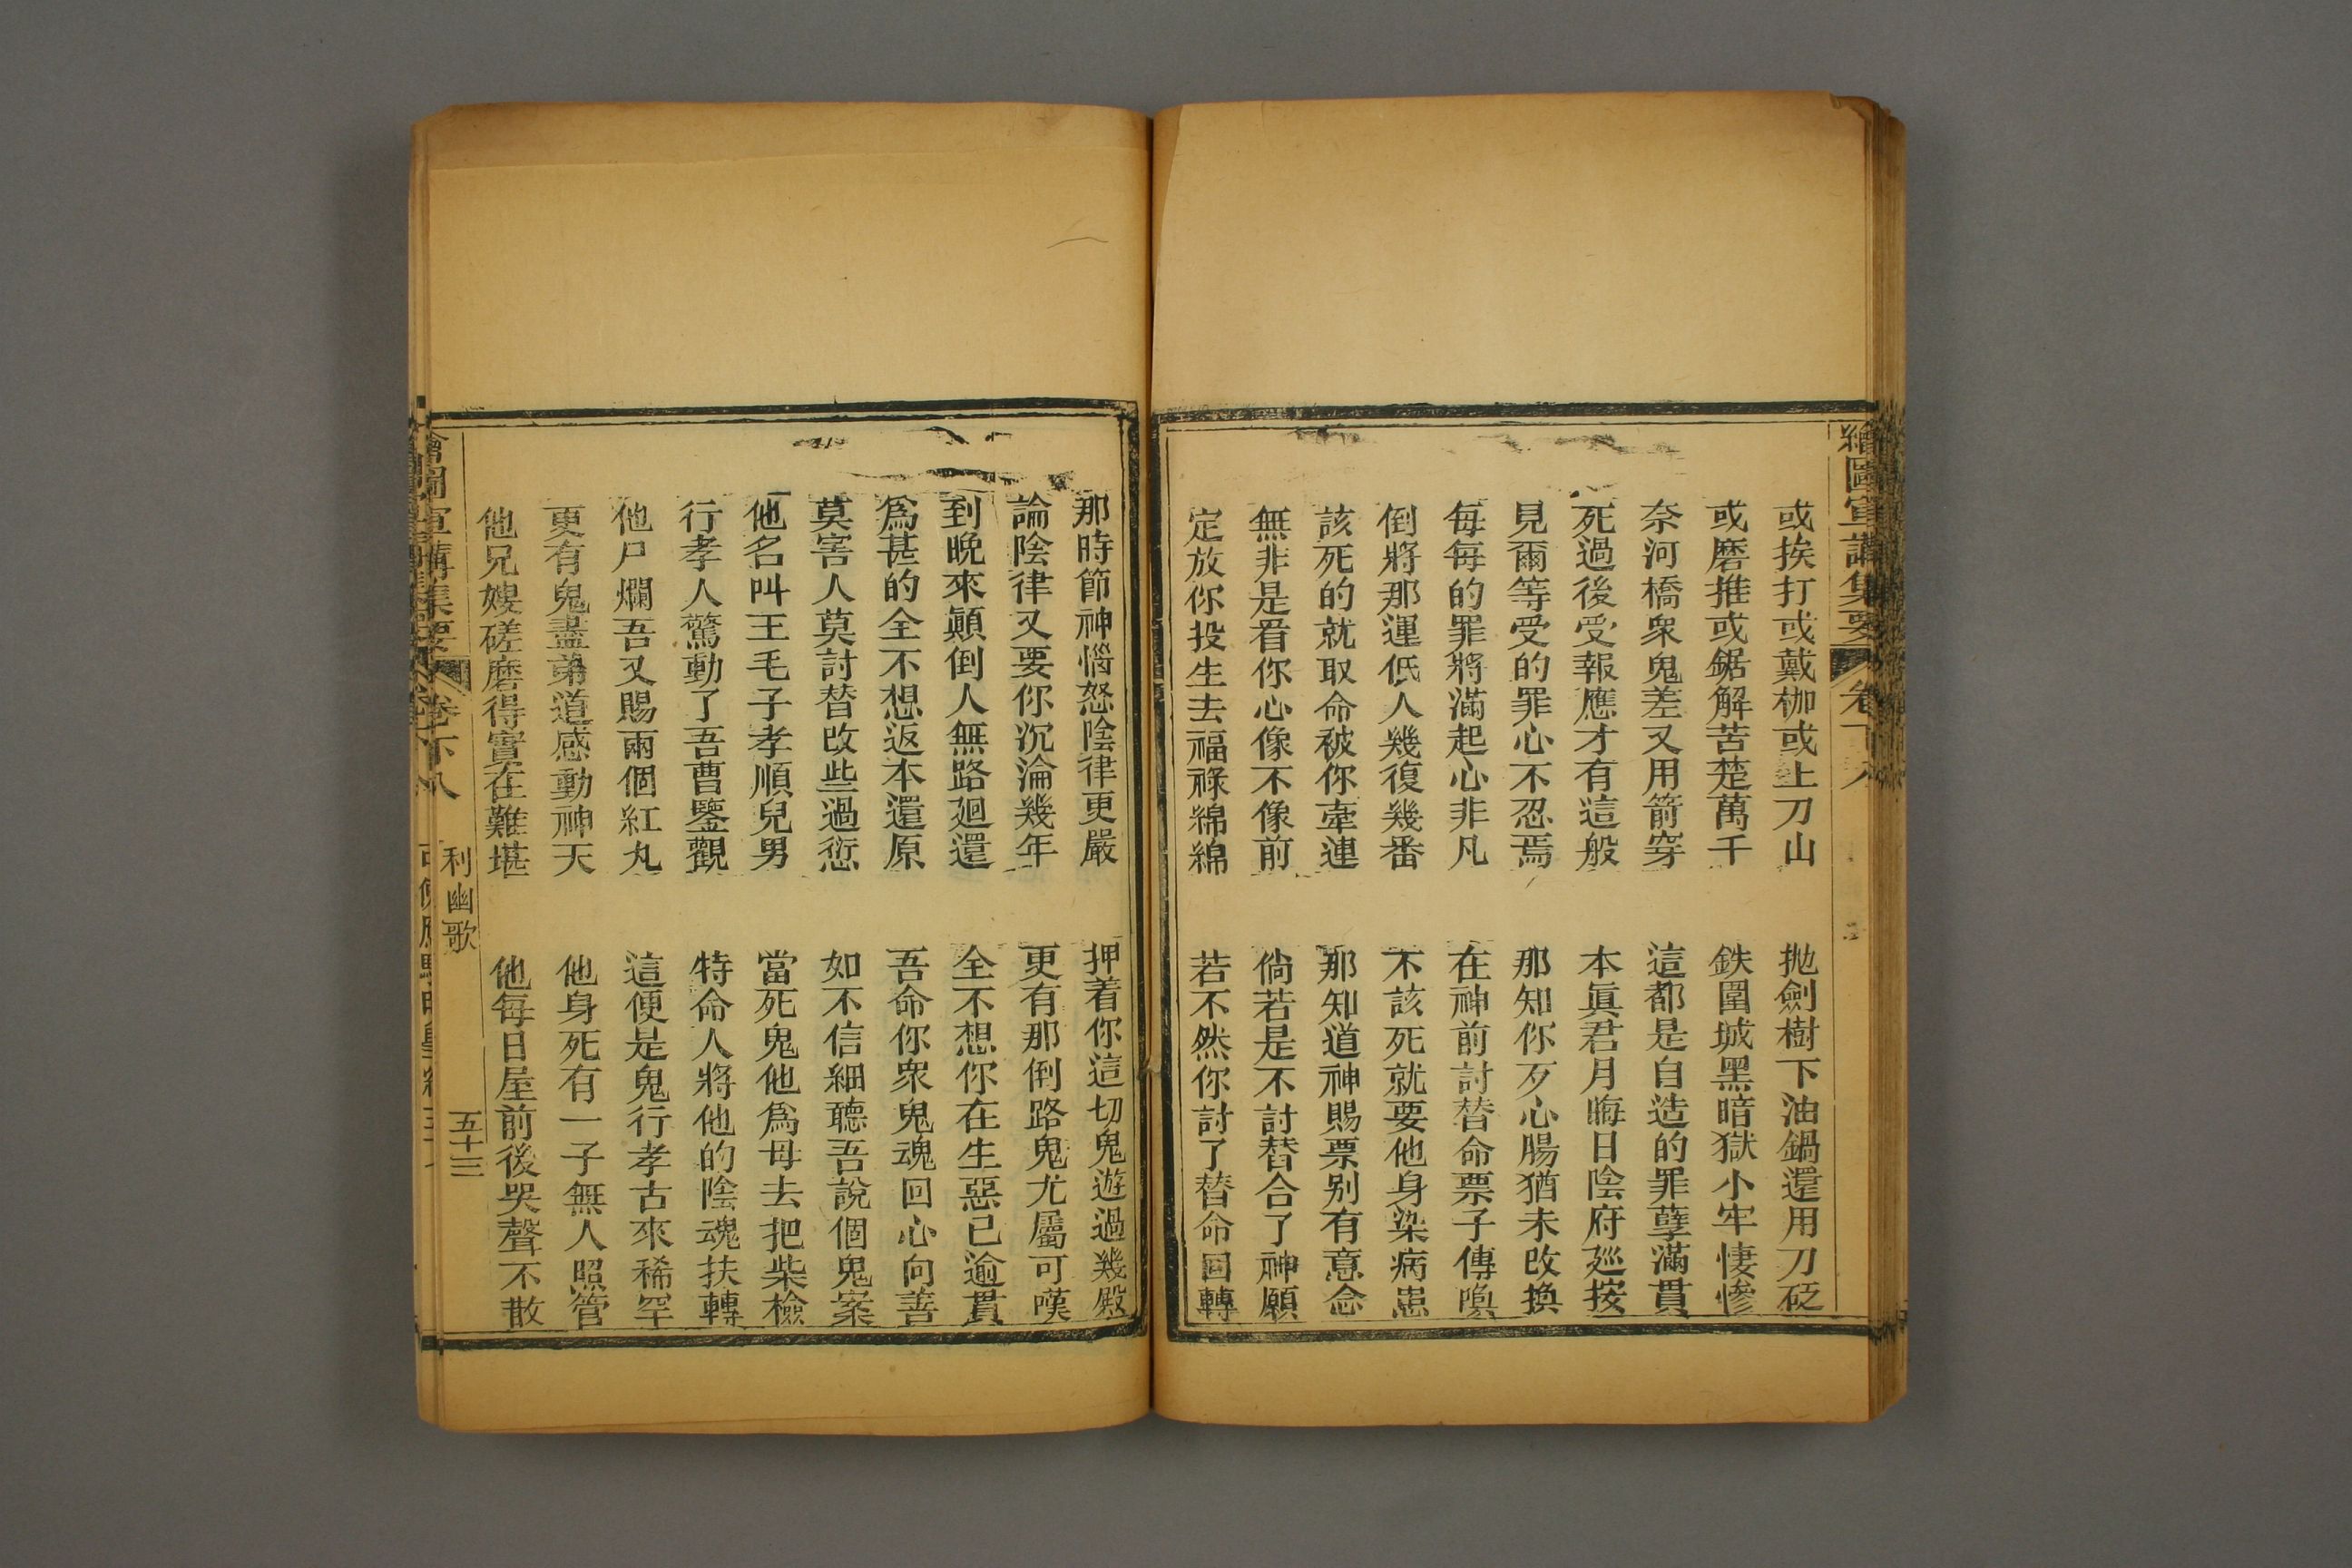 繪圖宣講集要 卷下八
或挨打或戴枷或上刀山 拋劍樹下油鍋還用刀砭
或磨推或鋸解苦楚萬千 鉄圍城黑暗獄小牢悽慘
奈河橋衆鬼差又用箭穿 這都是自造的罪孽滿貫
死過後受報應才有這般 本眞君月晦日陰府廵按
見爾等受的罪心不忍焉 那知你歹心腸猶未改換
每每的罪將滿起心非凡 在神前討替命票子傳喚
倒將那運低人幾復幾番 不該死就要他身染病患
該死的就取命被你牽連 那知道神賜票别有意念
無非是看你心像不像前 倘若是不討替合了神願
定放你投生去福祿綿綿 若不然你討了替命回轉
那時節神惱怒陰律更嚴 押着你這切鬼遊過幾殿
論陰律又要你沉淪幾年 更有那倒路鬼尤屬可嘆
到晩來顛倒人無路廻還 全不想你在生惡已逾貫
爲甚的全不想返本還原 吾命你衆鬼魂回心向善
莫害人莫討替改些過愆 如不信細聽吾說個鬼案
他名叫王毛子孝順兒男 當死鬼他爲母去把柴檢
行孝人驚動了吾曹鑒觀 特命人將他的陰魂扶轉
他尸爛吾又賜兩個紅丸 這便是鬼行孝古來稀罕
更有鬼盡弟道感動神天 他身死有一子無人照管
他兄嫂磋磨得實在難堪 他每日屋前後哭聲不散
繪圖宣講集要 卷下八 利幽歌 五十三